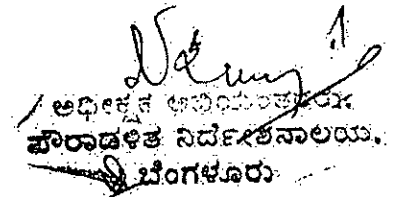 ಅಧೀಕ್ಷಕ ಅಭಿಯಂತರರು
ಪೌರಾಡಳಿತ ನಿರ್ದೇಶನಾಲಯ.
ಬೆಂಗಳೂರು